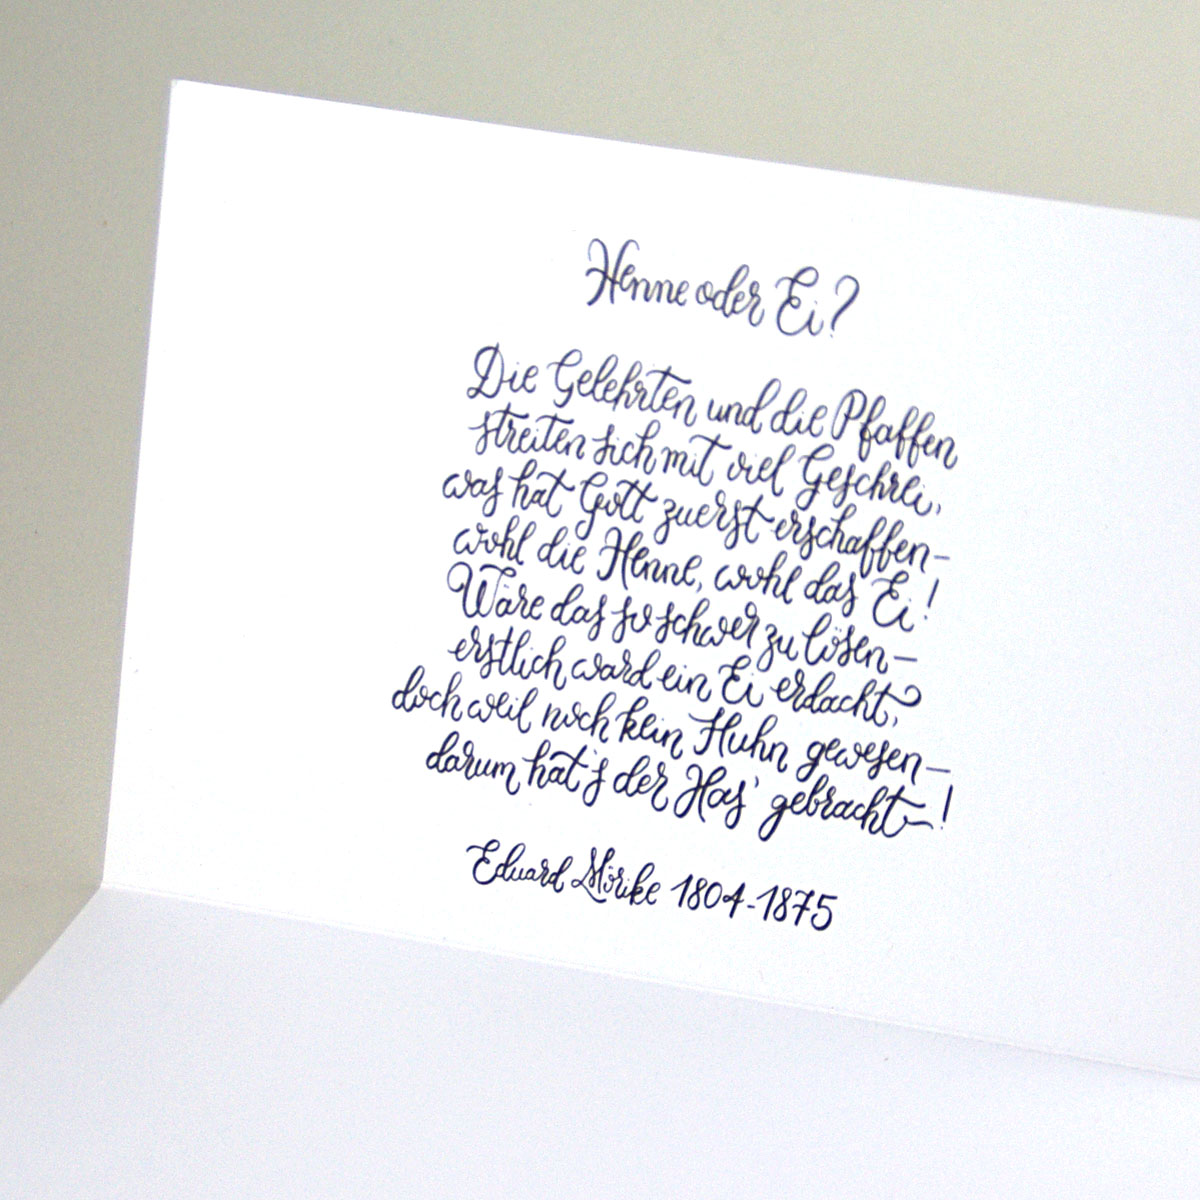 Henne oder Ei?
Die Gelehrten und die Pfaffen
streiten sich mit viel Geschrei,
was hat Gott zuerst erschaffen–
wohl die Henne, wohl das Ei!
Wäre das so schwer zu lösen–
erstlich ward ein Ei erdacht,
doch weil noch kein Huhn gewesen–
darum hat's der Has' gebracht–!
Eduard Mörike 1804-1875